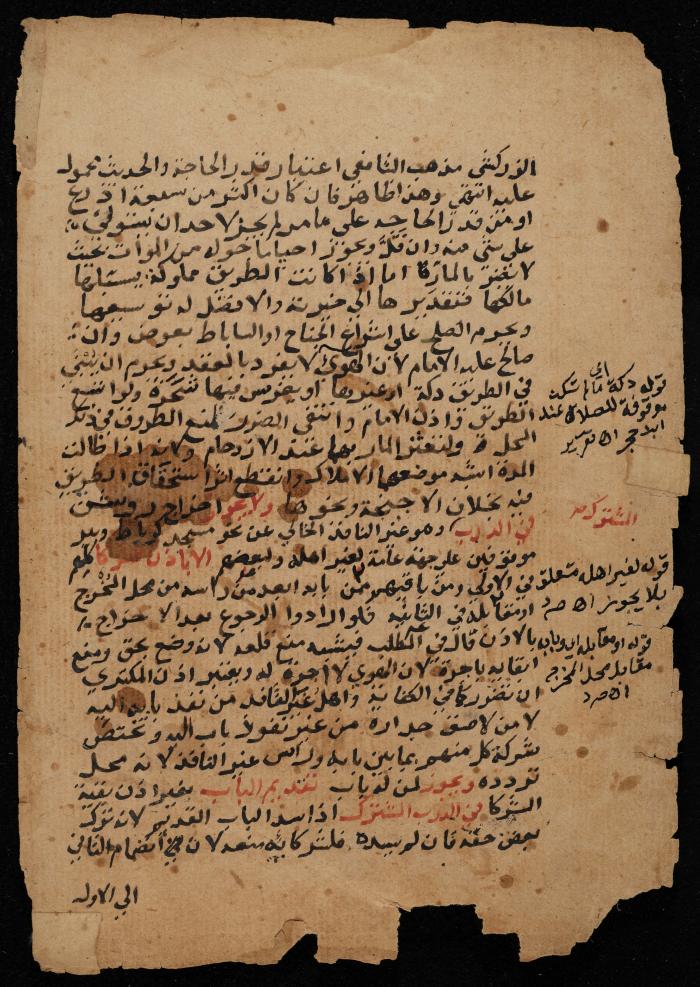 الزركشي مذهب الشافعي اعتبار قدر الحاجة والحديث محمول
عليه انتهى وهذا ظاهر فان كان اكثر من سبعة اذرع
او من قدر الحاجة على ما مر لم يجز لاحد ان يستولي
على شي منه وان قل ويجوز احيا ما حوله من الموات بحيث
لا يضر بالمارة اما اذا كانت الطريق مملوكة يسبلها
مالكها فتقديرها الى خيرته والافضل له توسيعها
ويحرم الصلح على اشراع الجناح او الساباط بعوض وان
صالح عليه الامام لان الهوى لا يفرد بالعقد ويحرم ان يبني
في الطريق دكة او غيرها او يغرس فيها شجرة ولو اتسع
الطريق واذن الامام وانتفى الضرر لمنع الطروق في ذلك
المحل ولتعثر المار بهما عند الازدحام ولانه اذا طالت
المدة اشبه موضعهما الاملاك وانقطع اثر استحقاق الطريق
فيه بخلاف الاجنحة ونحوها ولا يجوز اخراج روشن
في الدرب وهو غير النافذ الخالي عن نحو مسجد كرباط وبير
موقوفين على جهة عامة لغير اهله ولبعضهم الا باذن شركائهم
في الاولى ومن باقيهم ممن بابه ابعد من راسه من محل المخرج
او مقابله في الثانية فلو ارادوا الرجوع بعد الاخراج
بالاذن قال في المطلب فيشبه منع قلعه لانه وضع بحق ومنع
ابقايه باجرة لان الهوى لا اجرة له ويعتبر اذن المكتري
ان تضرر كما في الكفاية واهل غير النافذ من نفذ بابه اليه
لا من لاصق جداره من غير نفوذ باب اليه وتختص
شركة كل منهم بما بين بابه وراس غير النافذ لانه محل
تردده ويجوز لمن له باب تقديم الباب بغير اذن بقية
الشركا في الدرب المشترك اذا سد الباب القديم لانه ترك
بعض حقه فان لم يسده فلشركائه منعه لان انضمام الثاني
الى الاول
قوله دكة اي
موقوفة للصلاة عند
ابن حجر
المشترك
قوله لغير اهله متعلق
بلا يجوز
قوله او مقابله اي وبابه
مقابل محل المخرج